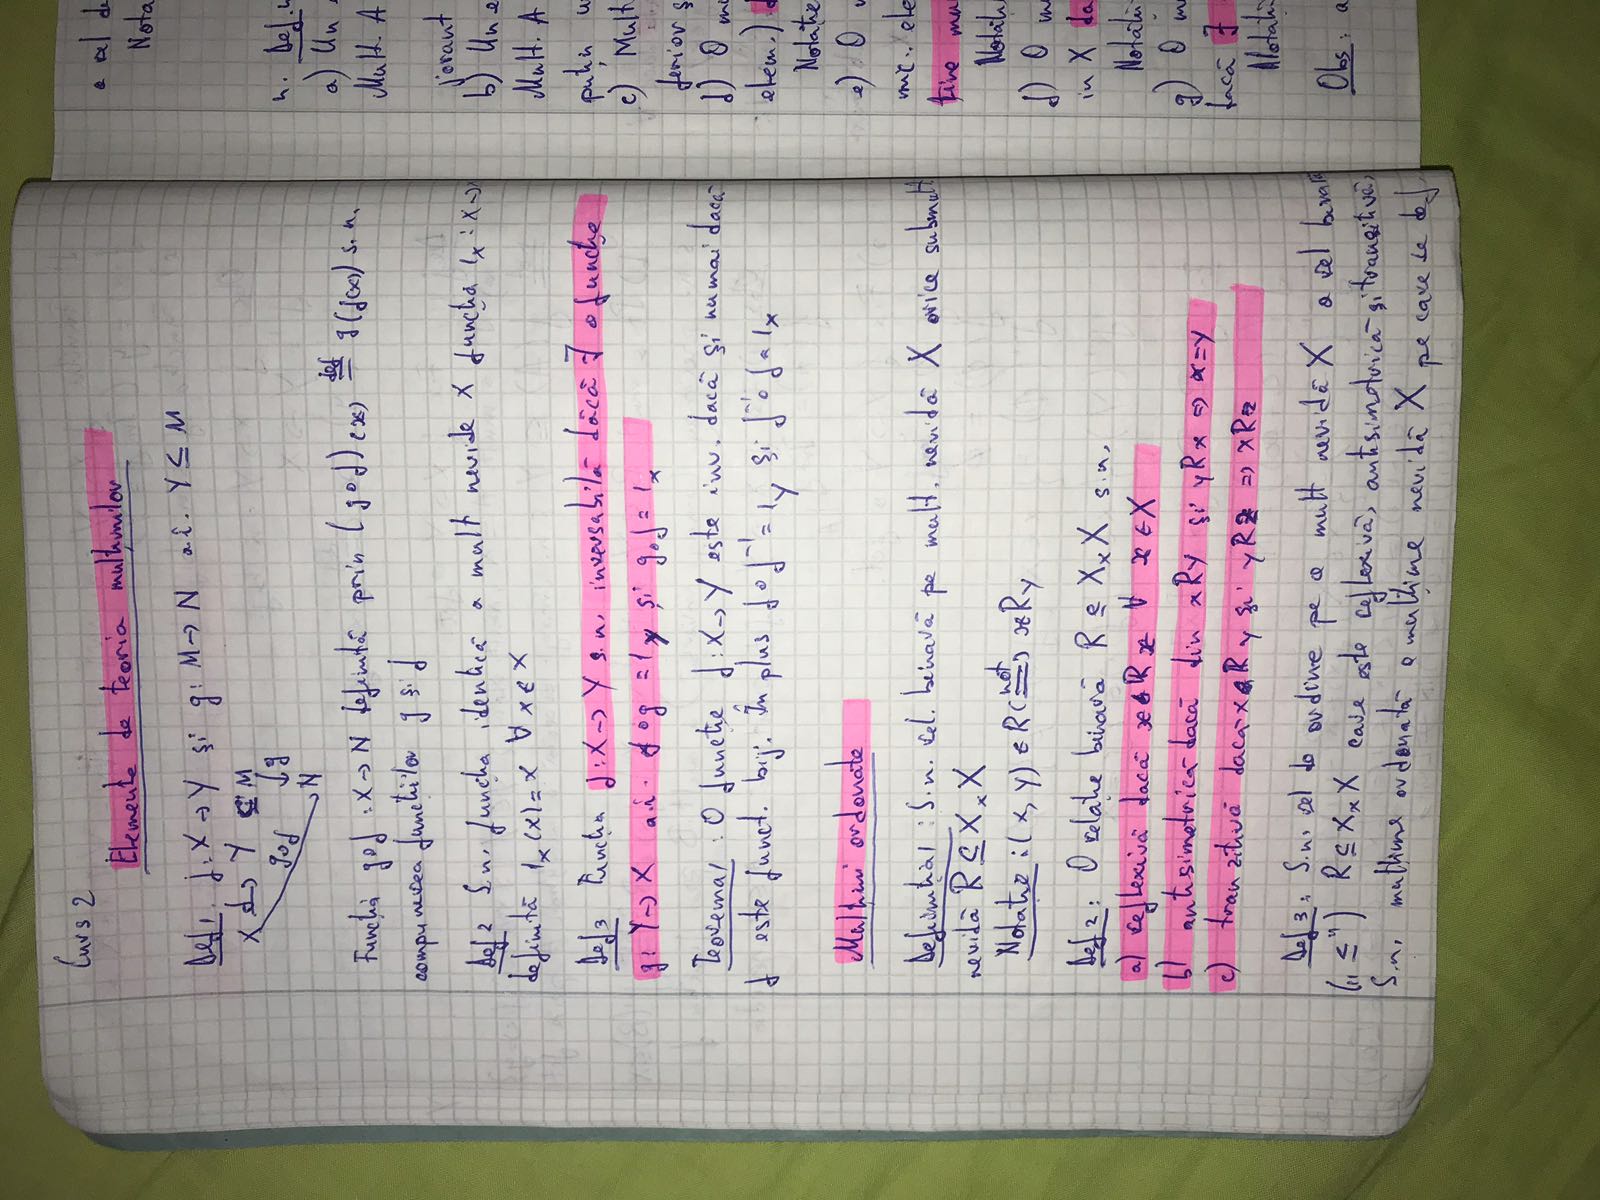 Curs 2
Elemente de teoria multimilor
Def 1. f: X → Y și g: M → N a.î. Y ⊆ M
X f→ Y ⊆ M
g∘f ↓g
N
Funcția g∘f : X → N definită prin (g∘f)(x) def= g(f(x)) s.n.
compunerea funcțiilor g și f
Def 2 S.n. funcția identică a mult nevide X funcția 1x : X →
definită 1x(x) = x ∀ x ∈ X
Def 3 Funcția f: X → Y s.n. inversabilă dacă ∃ o funcție
g: Y → X a.î. f∘g = 1y și g∘f = 1x
Teorema: O funcție f: X → Y este inv. dacă și numai dacă
f este funct. bij. În plus f∘f⁻¹ = 1y și f⁻¹∘f = 1x
Mulțimi ordonate
Definiția1: S.n. rel. binară pe mult. nevidă X orice submult
nevidă R ⊆ X x X
Notație: (x, y) ∈ R (not⟺) xRy
Def 2: O relație binară R ⊆ X x X s.n.
a) reflexivă dacă xRx ∀ x ∈ X
b) antisimetrică dacă din xRy și yRx ⇒ x=y
c) tranzitivă dacă xRy și yRz ⇒ xRz
Def 3: S.n. rel de ordine pe o mult nevidă X o rel binară
("≤") R ⊆ X x X care este reflexivă, antisimetrică și tranzitivă,
S.n. mulțime ordonată o mulțime nevidă X pe care se def
o rel d
Nota
n. Def.
a) Un
Mult. A
jorant
b) Un e
Mult. A
puțin u
c) Mult
ferior ș
d) O m
elem.)
Notație
e) O
mic. ele
tine mu
Notații
f) O m
în X da
Notați
g) O m
dacă ∃
Notați
Obs: a